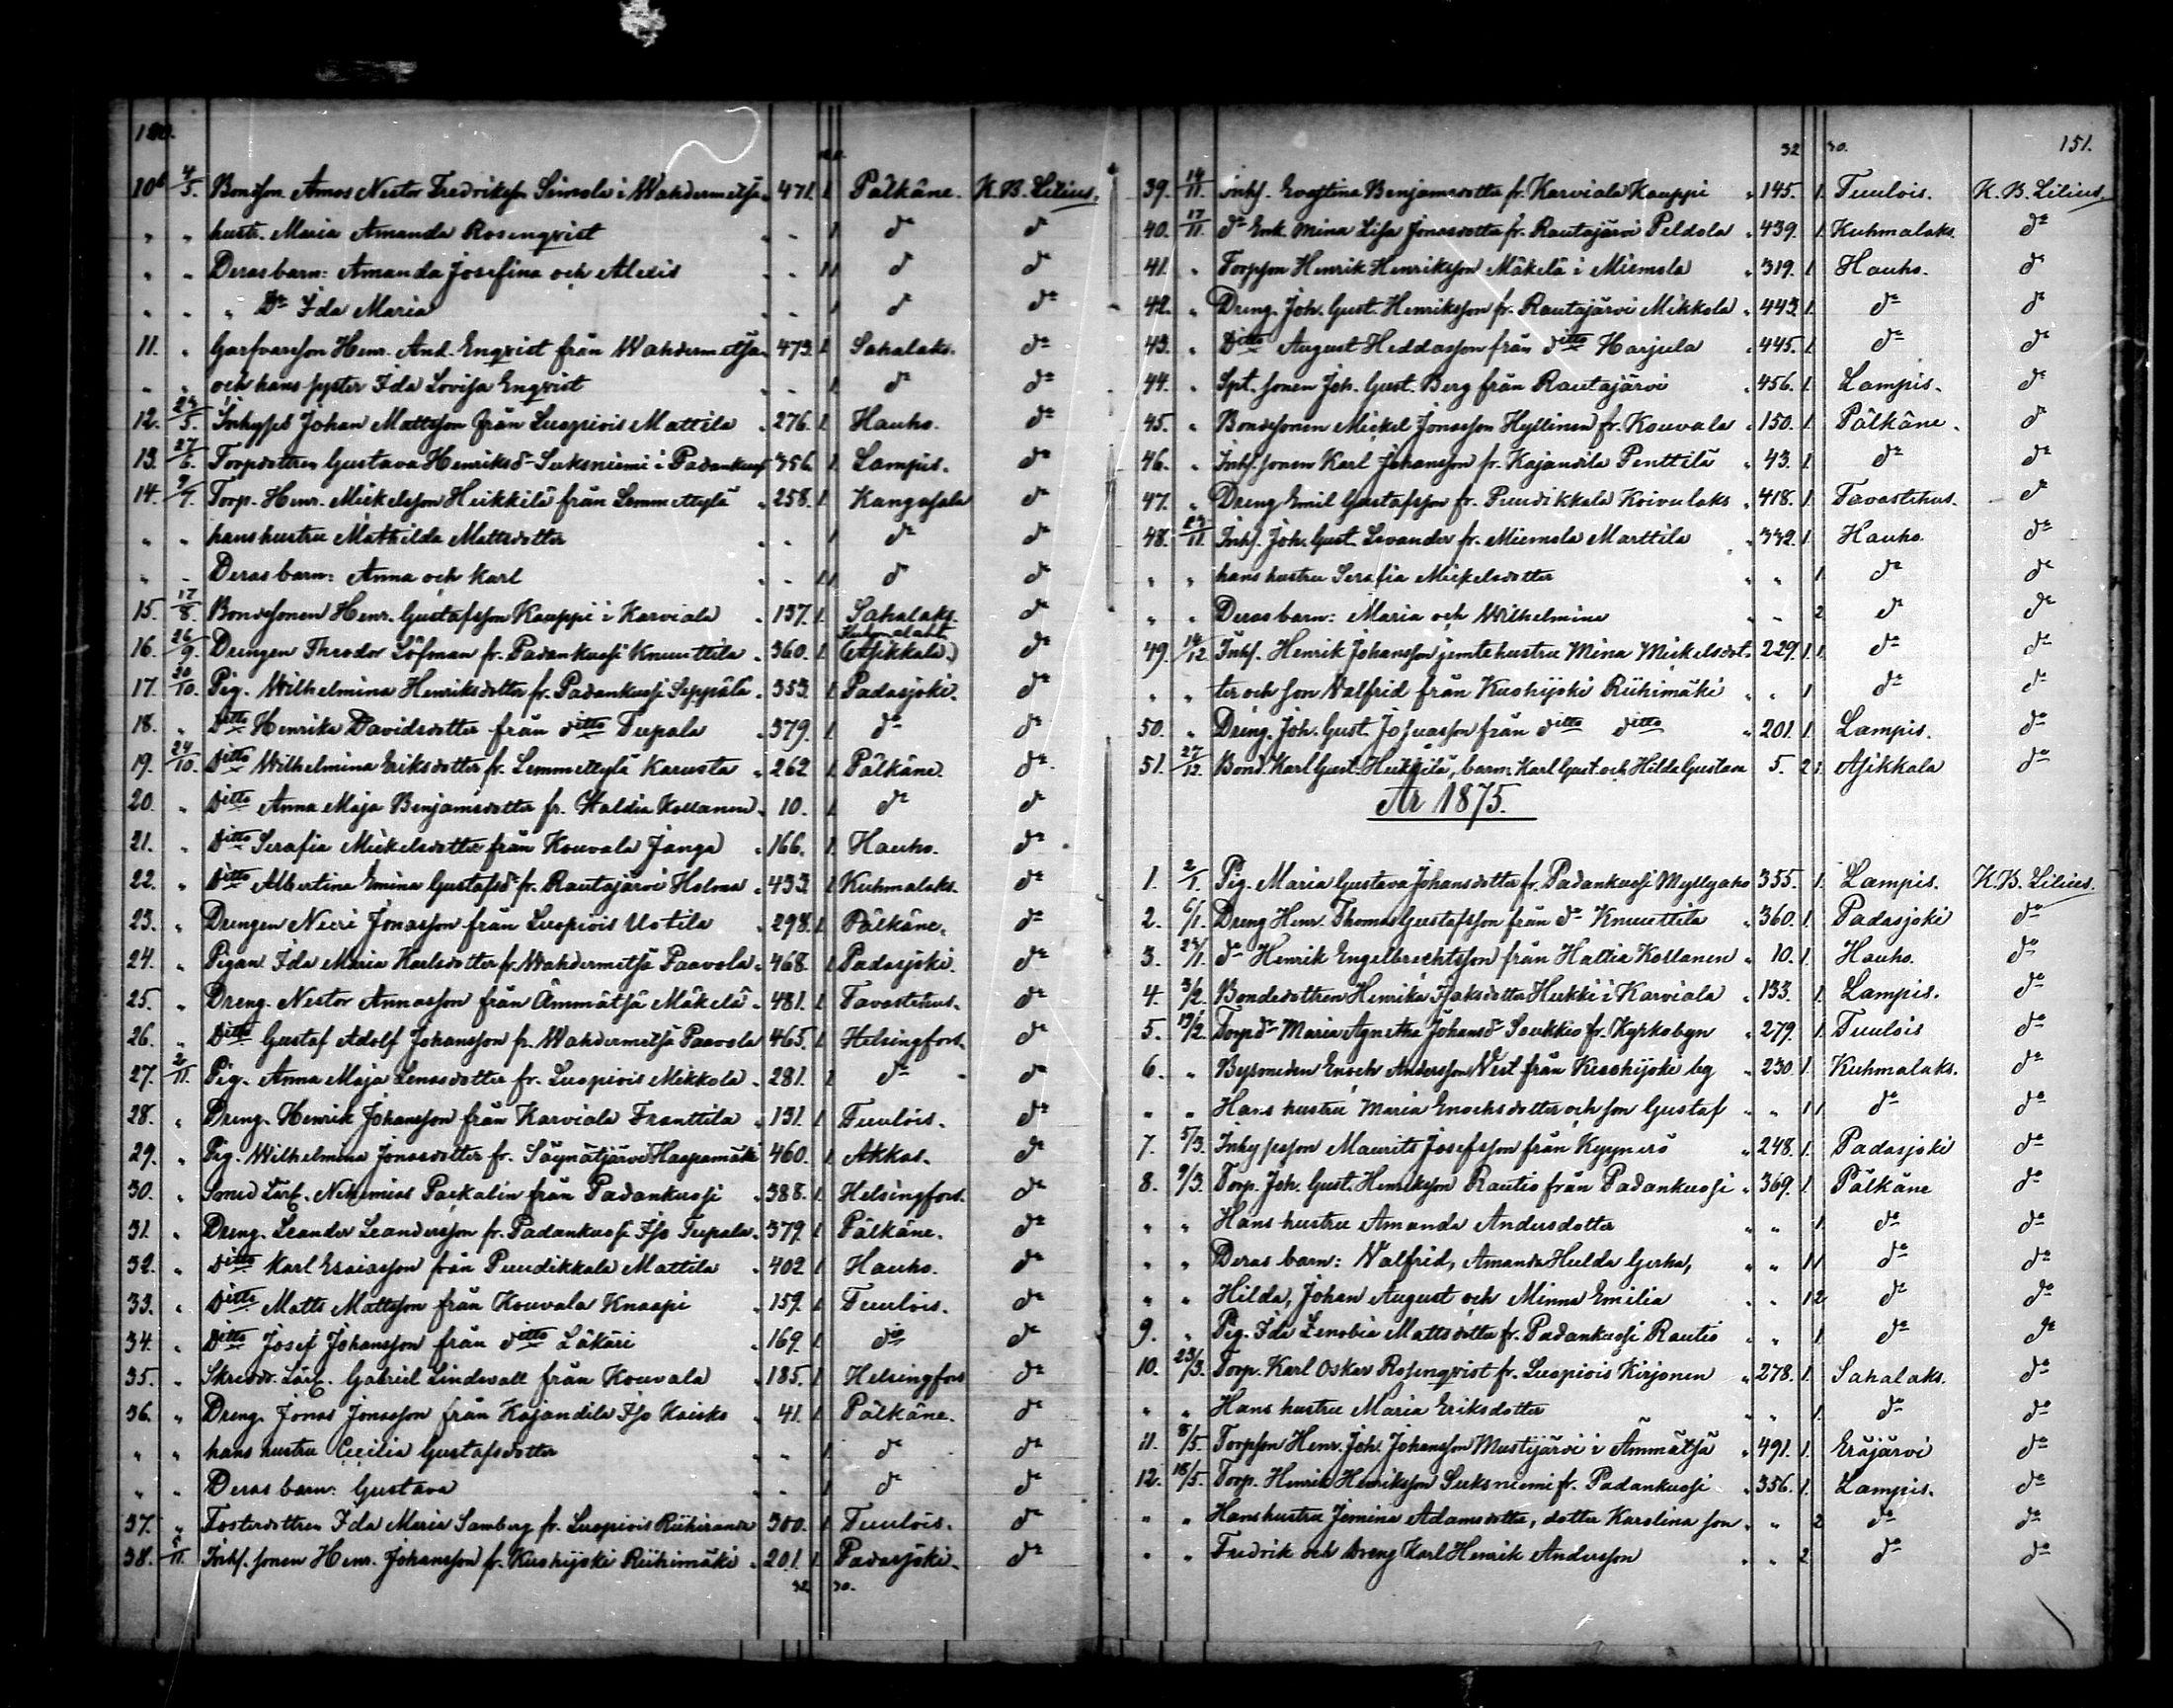 10b 4/5. Bondson Amos Nestor Fredriksson Simola i Wahdermetsä 471. 1 Pälkäne. K. B. Lilius.
" " hustr. Maria Amanda Rosenqvist " - 1 do do
" " Deras barn: Amanda Josefina och Alexis " - 1 1 do do
" " " Do Ida Maria " - 1 do do
11. " Garfvarson Henr. And. Enqvist från Wahdermetsä 473. 1 Sahalaks. do
" " och hans syster Ida Lovisa Enqvist " - 1. do do
12. 23/5. Inhyses Johan Mattsson från Luopiois Mattila " 276. 1. Hauho. do
13. 27/6. Torpdottren Gustava Henriksdr Suksniemi i Padankuos 356. 1. Lampis. do
14. 9/7. Torp. Henr. Mickelsson Heikkilä från Lemmettylä " 258. 1 Kangasala do
" " hans hustru Mathilda Mattsdotter " - 1 do do
" - Deras barn: Anna och Karl " - 1 1 do do
15. 17/8. Bondsonen Henr. Gustafsson Kauppi i Karviala " 137. 1. Sahalaks. do
16. 26/9. Drengen Theodor Löfman fr. Padankuosi Knuuttila " 360. 1. Kuhmalaht (Asikkala.) do
17. 20/10. Pig. Wilhelmina Henriksdotter fr. Padankuosi Seppälä " 353. 1 Padasjoki. do
18. " Ditto Henrika Davidsdotter från ditto Tupala " 379. 1. do do
19. 24/10. Ditto Wilhelmina Eriksdotter fr. Lemmettylä Karusta " 262 1. Pälkäne. do
20. " Ditto Anna Maja Benjamsdotter fr. Haldia Kollanen " 10. 1. do do
21. " Ditto Serafia Mickelsdotter från Kouvala Janga " 166. 1. Hauho. do
22. " Ditto Albertina Emina Gustafsdr fr. Rautajärvi Holma " 433. 1 Kuhmalaks. do
23. " Drengen Jonasson från Luopiois Uotila " 298. 1 Pälkäne. do
24. " Pigan Ida Maria Karlsdotter fr. Wahdermetsä Paavola " 468. 1 Padasjoki. do
25. " Dreng. Nestor Annasson från Ämmätsä Mäkelä " 481. 1 Tavastehus. do
26. " Ditto Gustaf Adolf Johansson fr. Wahdermetsä Paavola 465. 1 Helsingfors. do
27. 2/11. Pig. Anna Maja Lenasdotter fr. Luopiois Mikkola " 281. 1 do do
28. " Dreng. Henrik Johansson från Karviala Franttila " 131. 1 Tuulois. do
29. " Pig. Wilhelmina Jonasdotter fr. Säynätjärvi Haapamäki 460. 1 Akkas. do
30. " Smed Lärl. Nehemias Paskalin från Padankuosi " 388. 1. Helsingfors. do
31. " Dreng. Leander Leandersson fr. Padankuosi Iso Tupala " 379. 1 Pälkäne. do
32. " Ditto Karl Esaiasson från Puudikkala Mattila " 402 1 Hauho. do
33. " Ditto Matts Mattsson från Kouvala Knaapi " 159. 1 Tuulois. do
34. " Ditto Josef Johansson från ditto Läkäri " 169. 1 do do
35. " Skredd. Lärl. Gabriel Lindevall från Kouvala " 185. 1 Helsingfors do
36. " Dreng. Jonas Jonasson från Kajandila Iso Kaisko " 41. 1. Pälkäne. do
" " hans hustru Cecilia Gustafsdotter " - 1. do do
" " Deras barn: Gustava " - 1 do do
37. " Fosterdottren Ida Maria Samberg fr. Luopiois Riihiranda 300. 1. Tuulois. do
38. 5/11. Inhs. sonen Henr. Johansson fr. Kuohijoki Riihimäki " 201. 1. Padasjoki. do
32 30.
32 30. 151.
39. 14/11. Inhs. Benjamsdotter fr. Karviala Kauppi " 145. 1. Tuulois. K. B. Lilius.
40. 17/11. do Enk. Mina Lisa Jonasdotter fr. Rautajärvi Peldola " 439. 1. Kuhmalaks. do
41. " Torpson Henrik Henriksson Mäkelä i Miemola " 319. 1. Hauho. do
42. " Dreng. Joh. Gust. Henriksson fr. Rautajärvi Mikkola " 443. 1. do do
43. " Ditto August Heddasson från ditto Harjula " 445. 1. do do
44. " Spt. sonen Joh. Gust. Berg från Rautajärvi " 456. 1. Lampis. do
45. " Bondesonen Mickel Jonasson Hyllinen fr. Kouvala " 150. 1. Pälkäne. do
46. " Inhs. sonen Karl Johansson fr. Kajandila Penttilä " 43. 1. do do
47. " Dreng Emil Gustafsson fr. Puudikkala Koivulaks " 418. 1. Tavastehus. do
48. 23/11. Inhs. Joh. Gust. Levander fr. Miemola Marttila " 332. 1. Hauho. do
" " hans hustru Serafia Mickelsdotter " " 1. do do
" " Deras barn: Maria och Wilhelmina " - 2 do do
49. 14/12. Inhs. Henrik Johansson jemte hustru Mina Mickelsdot- 229. 1. 1. do do
" " ter och son Valfrid från Kuohijoki Riihimäki " " 1 do do
50. " Dreng. Joh. Gust. Josuasson från ditto ditto " 201. 1. Lampis. do
51. 27/12. Bond. Karl Gust. Heikkilä, barn: Karl Gust. och Hilda Gustava 5. 2 1. Asikkala do
År 1875.
1. 2/1. Pig. Maria Gustava Johansdotter fr. Padankuosi Myllyaho 355. 1. Lampis. K. B. Lilius.
2. 6/1. Dreng Henr. Thomas Gustafsson från do Knuuttila " 360. 1. Padasjoki do
3. 23/1. do Henrik Engelbrechtsson från Haltia Kollanen " 10. 1. Hauho. do
4. 3/2. Bondedottren Henrika Isaksdotter Heikki i Karviala " 133. 1. Lampis. do
5. 13/2. Torpdr Maria Agnetha Johansdr Soukkio fr. Kyrkobyn " 279. 1. Tuulois do
6. " Bysmeden Enoch Andersson Vest från Kuohijoki by " 230. 1. Kuhmalaks. do
" " Hans hustru Maria Enochsdotter och son Gustaf " " 1 1. do do
7. 5/3. Inhysson Maurits Josefsson från Kyynerö " 248. 1. Padasjoki do
8. 9/3. Torp. Joh. Gust. Henriksson Rautio från Padankuosi " 369. 1. Pälkäne do
" " Hans hustru Amanda Andersdotter " " 1. do do
" " Deras barn: Valfrid, Amanda Hulda Gerha, " " 1 1 do do
" " Hilda, Johan August och Minna Emilia " " 1 2 do do
9. " Pig. Ida Zenobia Mattsdotter fr. Padankuosi Rautio " " 1. do do
10. 23/3. Torp. Karl Oskar Rosenqvist fr. Luopiois Kirjonen " 278. 1. Sahalaks. do
" " Hans hustru Maria Eriksdotter " " 1. do do
11. 8/5. Torpson Henr. Joh. Johansson Mustijärvi i Ämmätsä " 491. 1. Eräjärvi do
12. 18/5. Torp. Henrik Henriksson Suksniemi fr. Padankuosi " 356. 1. Lampis. do
" " Hans hustru Jemina Adamsdotter, dotter Karolina son " " 2 do do
" " Fredrik och Dreng Karl Henrik Andersson " " 2. do do